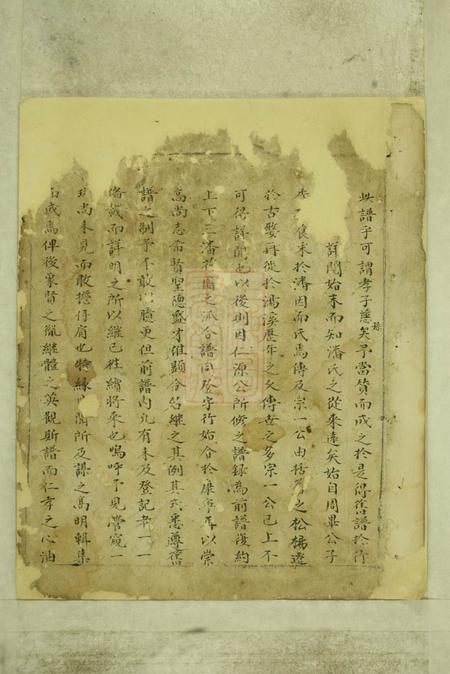 此譜乎可謂孝子慈孫矣予當贊而成之於是得舊譜於行
詳閱始末而知潘氏之從來遠矣始自周畢公子
季 食采於潘因而氏焉傳及宗一公由括 之松楊遷
於古婺再徙於鴻溪歷年之久傳世之多宗一公已上不
可得詳聞也以後則因仁源公所修之譜錄為前譜復約
上下三潘 之派合譜同 字行始合於康 以崇
高尚志 賢聖德盛才雄顯合名繼之其例其 悉遵舊
譜之制予不敢以臆更但前譜內凡有未及登記者一一
備載而詳明之所以繼已往續將來也嗚呼予見管窺一
斑尚未見而敢擔待肩也特緣 聞所及謀之高明輯集
而成焉俾後象賢之胤繼體之英觀斯譜而仁孝之心油